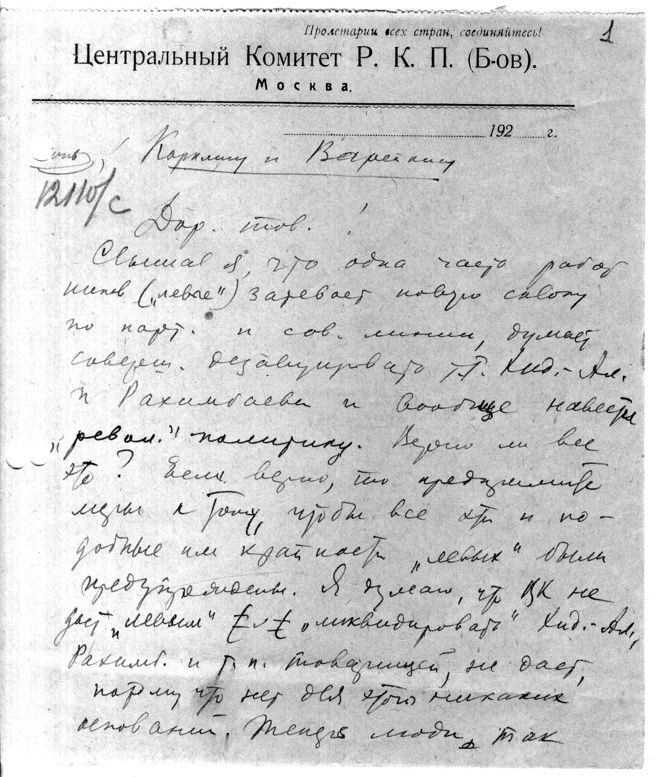 Пролетарии всех стран, соединяйтесь!
1
Центральный Комитет Р. К. П. (Б-ов).
Москва.
192 г.
Карклину и Варейкису
12110/с
Дор. тов.!
Слышал я, что одна часть работ
ников („левые“) затевает новую склоку
по парт. и сов. линии, думает
соверш. дезавуировать т.т. Ход.-Ал.
и Рахимбаева и вообще навести
„револ.“ политику. Верно ли все
это? Если верно, то предпримите
меры к тому, чтобы все эти и по-
добные им крайности „левых“ были
предупреждены. Я думаю, что ЦК не
даст „левым“ „ликвидировать“ Ход.-Ал.,
Рахимб. и т.п. товарищей, не даст,
потому что нет для этого никаких
оснований. люди, так